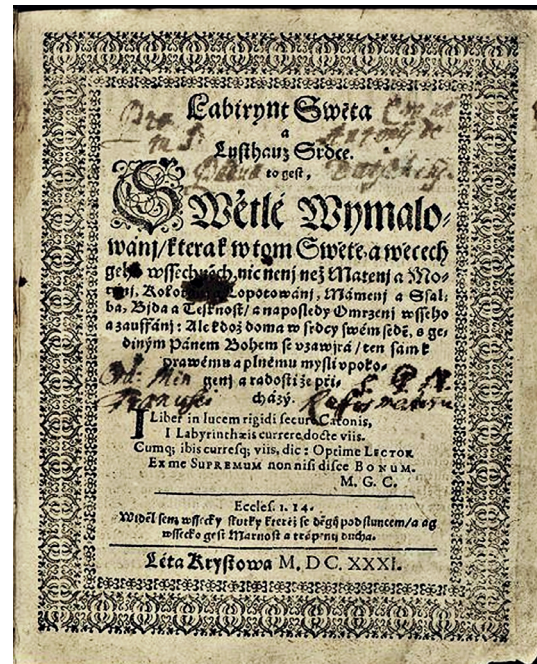 Labirynt Swěta
a
Lusthauz Srdce.
to gest,
SWětlé Wymalo-
wánj / kterak w tom Swětě, a wěcech
geho wssechněch, nic nenj než Matenj a Mo-
tánj, Kolo Lopotowánj, Mámenj a Ssal-
ba, Bjda a Tesknost / a naposledy Omrzenj wsseho
a zauffánj: Ale kdož doma w srdcy swém sedě, s ge-
diným Pánem Bohem se vzawjrá / ten sám k
prawému a plnému mysli vpoko-
genj a radosti že při-
cházý.
I Liber in lucem rigidi secure Catonis,
I Labyrinthæis currere, docte viis.
Cumq; ibis curresq; viis, dic: Optime LECTOR
Ex me SUPREMUM non nisi disce BONUM.
M. G. C.
Eccles. 1. 14.
Widěl sem wssecky skutky kteréž se děgj pod sluncem / a ag
wssecko gest Marnost a trápenj ducha.
Léta Krystowa M. DC. XXXI.